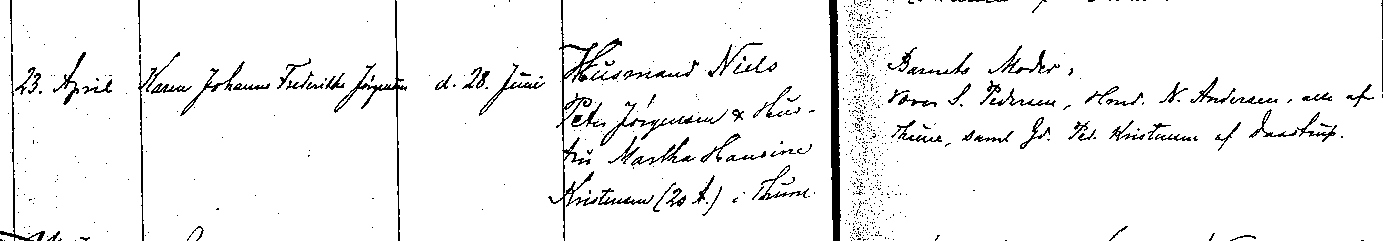 23. April Karen Johanne Frederikke Jørgensen d. 28. Juni Husmand Niels
Peter Jörgensen & Hus-
tru Martha Hansine
Kristensen (20 A.) i Thune
Barnets Moder,
S. Pedersen, Hmd. N. Andersen, alle af
Thune, samt Gd. Ped. Kristensen af Daastrup.